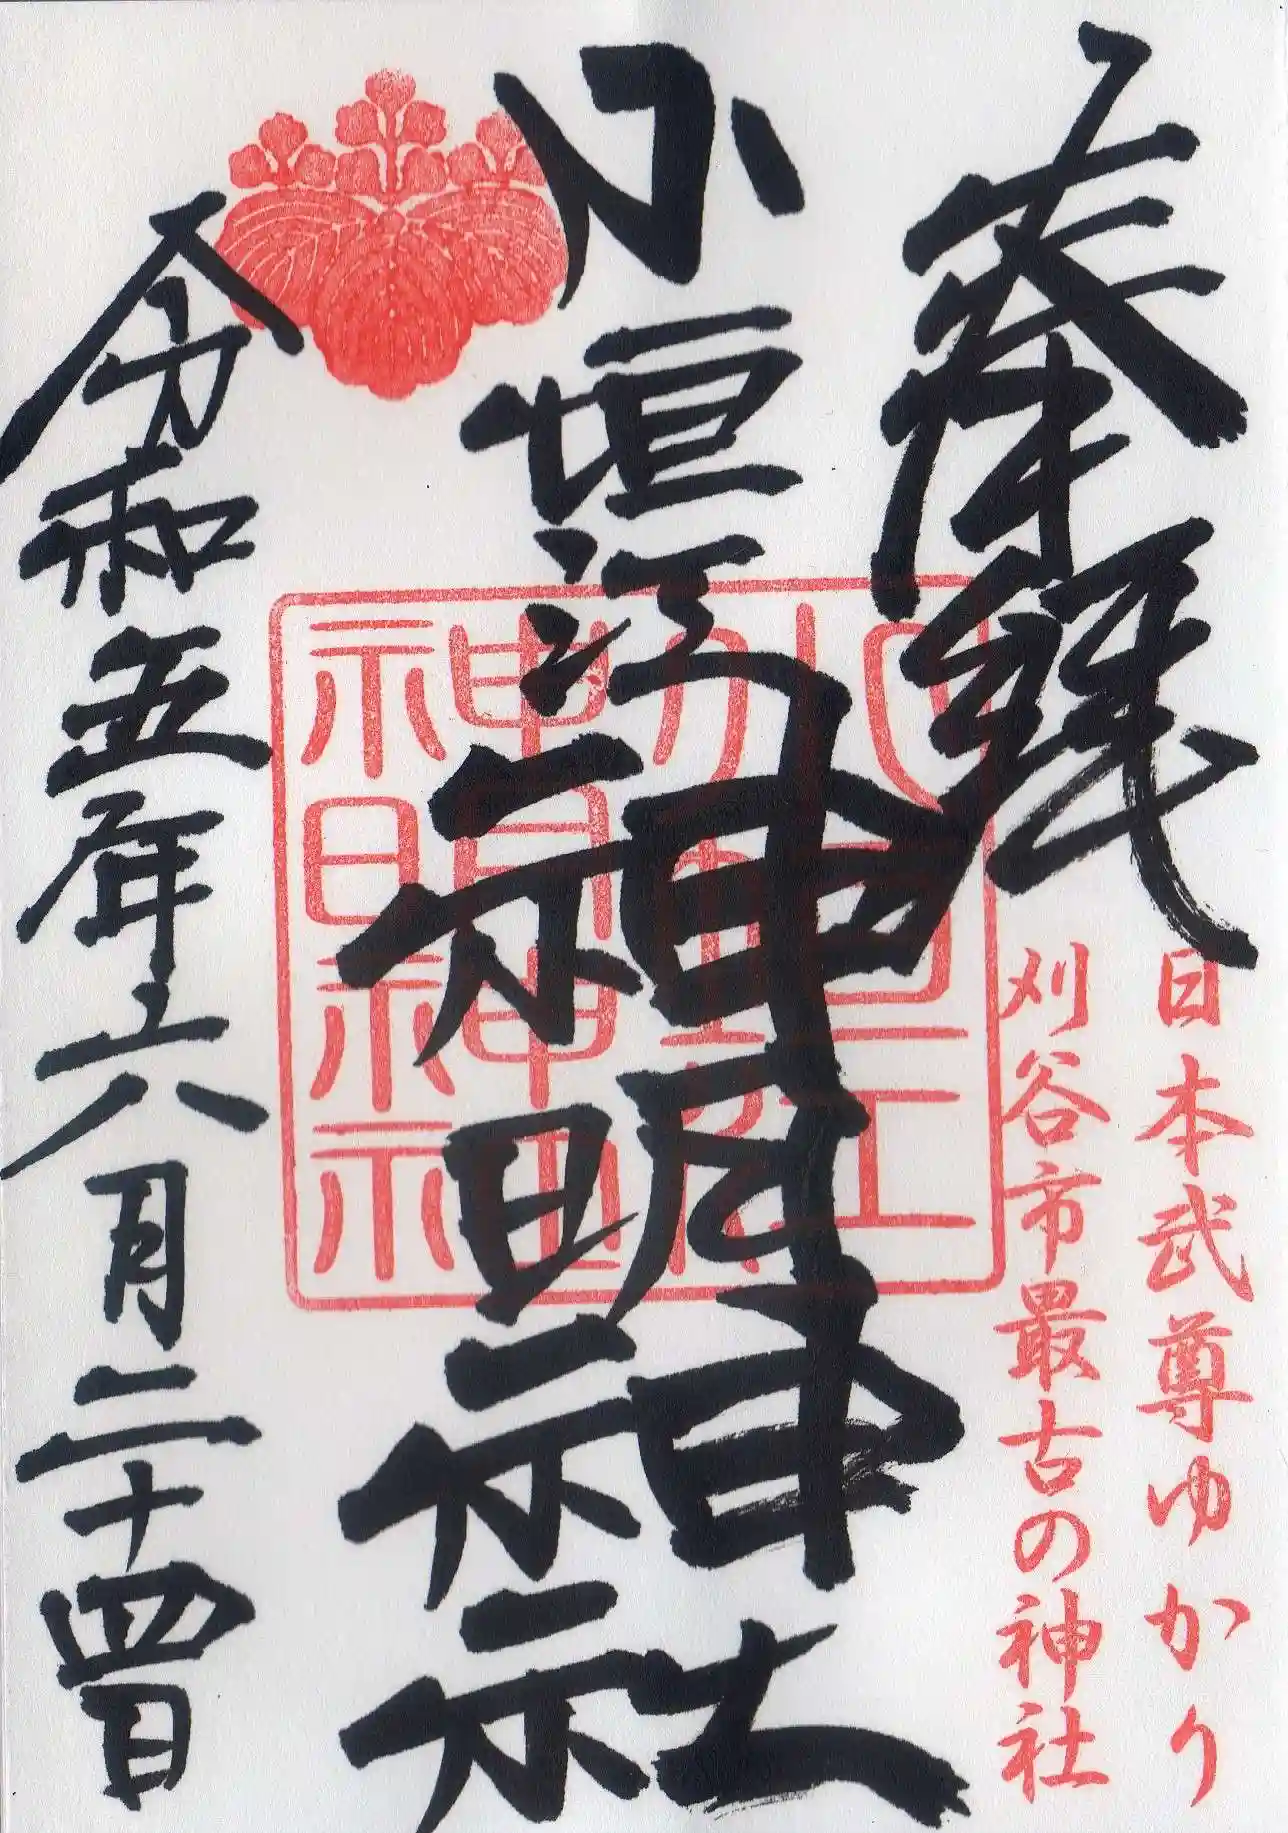 奉拝
日本武尊ゆかり
刈谷市最古の神社
小垣江神明神社
令和五年六月二十四日